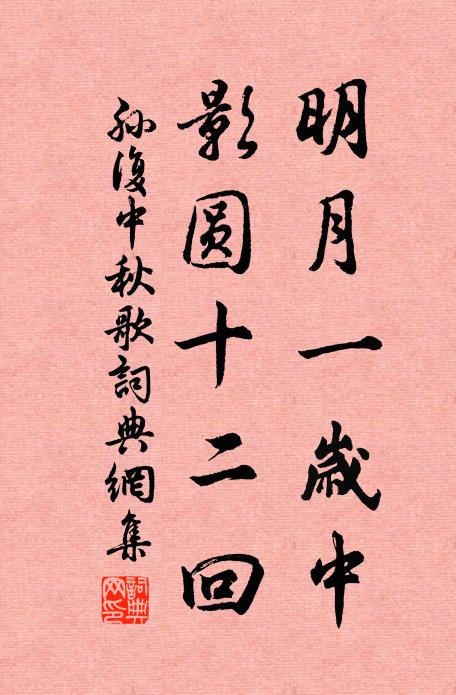 明月一歲中
影圓十二回
孫復中秋歌詞典網集
詞典網印